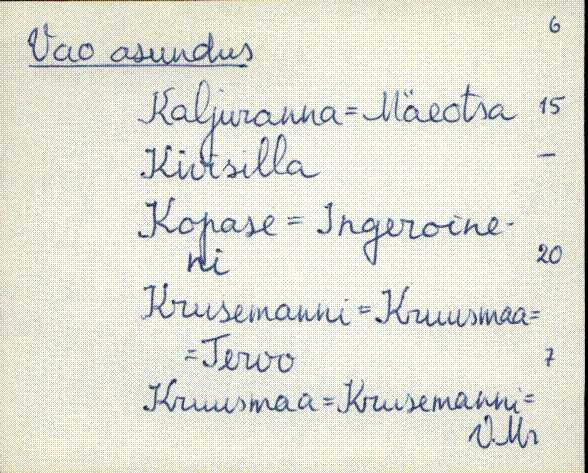 6
Vao asundus
Kaljuranna = Mäeotsa 15
Kivisilla –
Kopase = Ingeroine-
ni 20
Krusemanni = Kruusmaa =
= Tervo 7
Kruusmaa = Krusemanni =
V.Mr